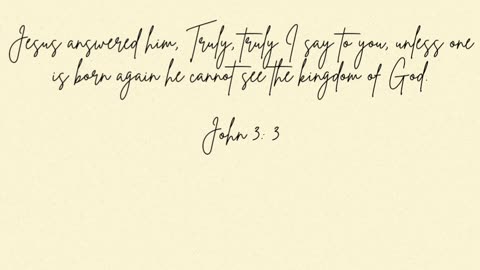 Jesus answered him, Truly, truly I say to you, unless one
is born again he cannot see the kingdom of God.
John 3: 3